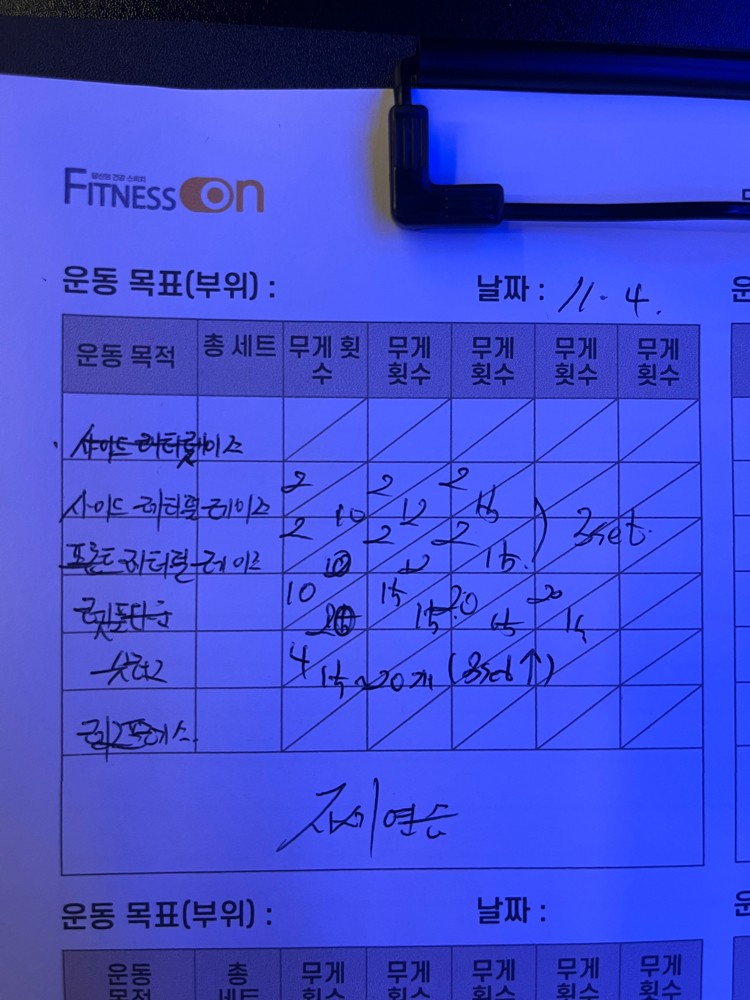 당신의 건강 스위치
FITNESS ON
운동 목표(부위) : 날짜 : 11. 4.
운동 목적 총 세트 무게 횟수 무게 횟수 무게 횟수 무게 횟수 무게 횟수
사이드 레터럴 레이즈 2 10 2 12 2 15
프론트 레터럴 레이즈 2 10 2 12 2 15 3set.
10 20 15 15 20 15 20 15
4 15~20개 (3set↑)
자세 연습
운동 목표(부위) : 날짜 :
운동 목적 총 세트 무게 횟수 무게 횟수 무게 횟수 무게 횟수 무게 횟수